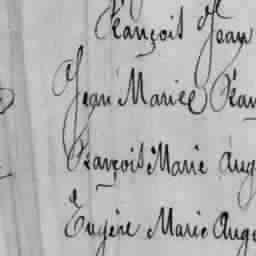 François Jean
Jean Marie Fran
François Marie Aug
Eugène Marie Auge